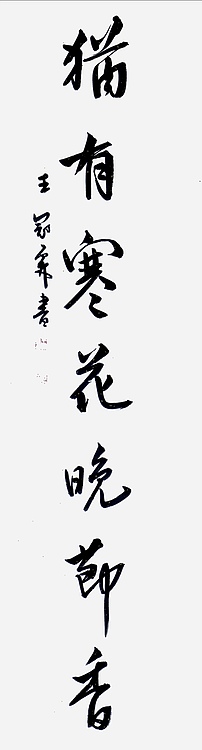 猶有寒花晚節香
王冠軍書